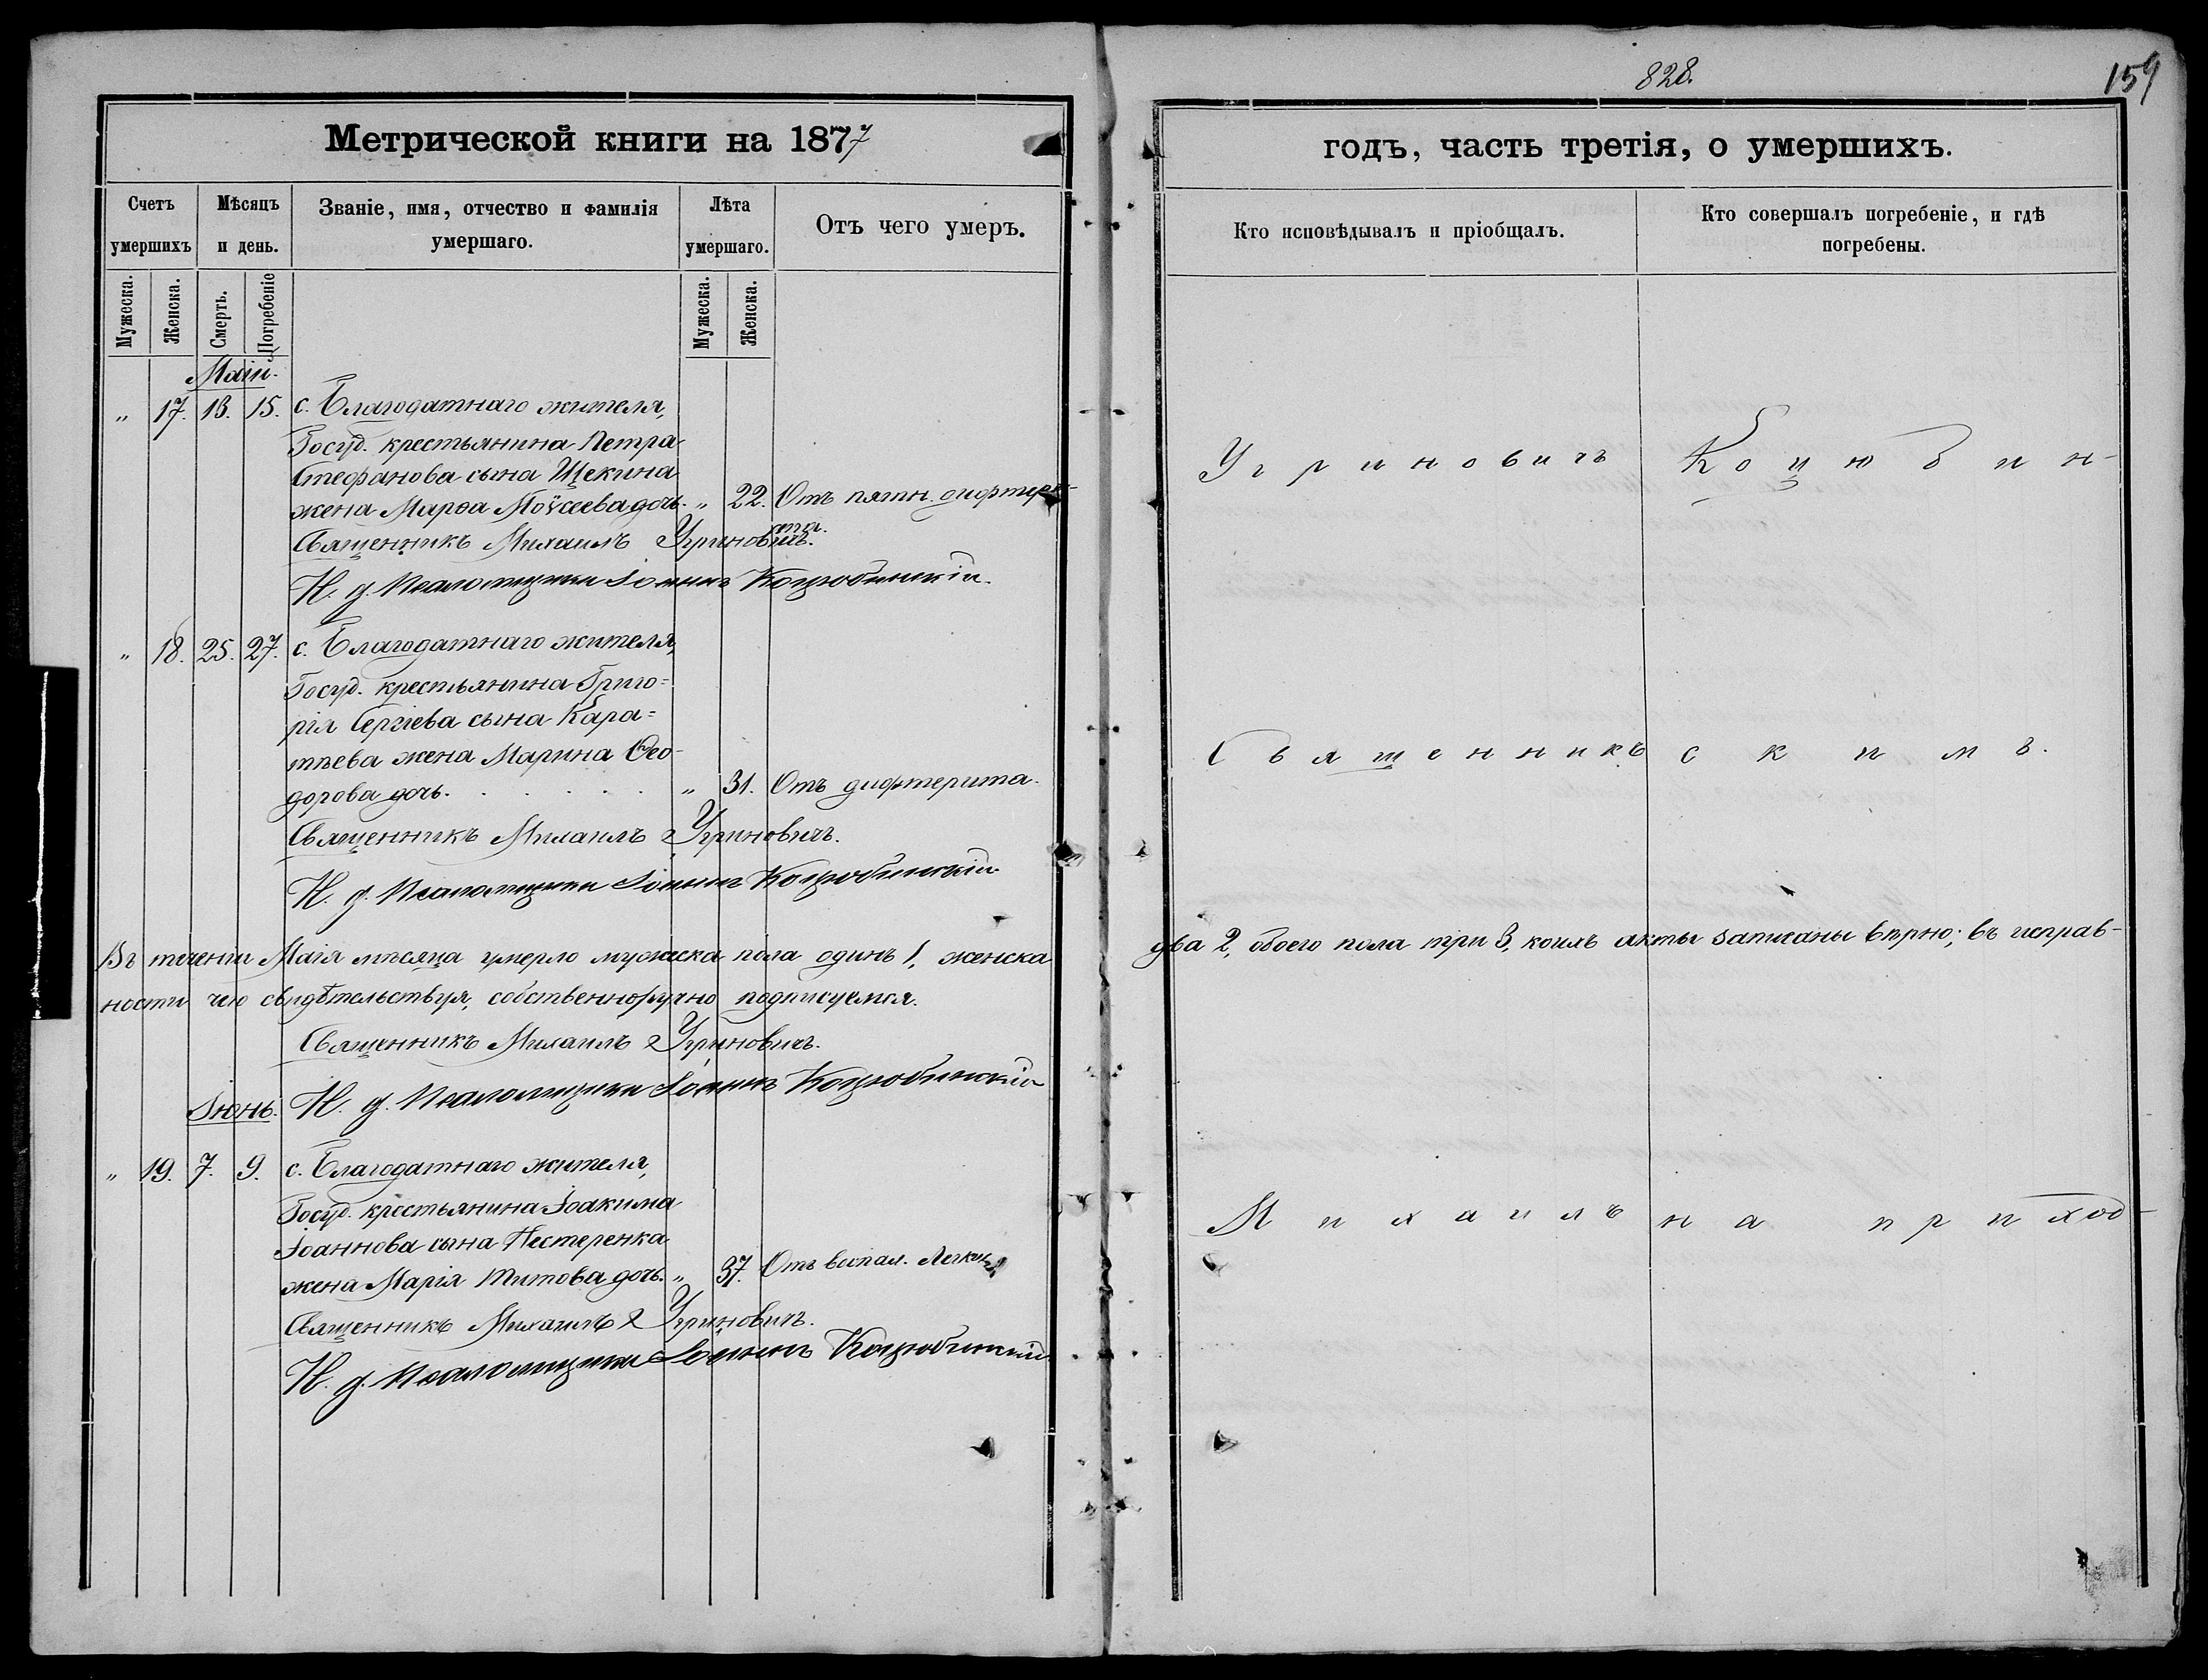 828.
159
Метрической книги на 1877
годъ, часть третія, о умершихъ.
Счетъ умершихъ
Мѣсяцъ и день.
Званіе, имя, отчество и фамилія умершаго.
Лѣта умершаго.
Отъ чего умеръ.
Кто исповѣдывалъ и пріобщалъ.
Кто совершалъ погребеніе, и гдѣ погребены.
Мужеска.
Женска.
Смерть.
Погребеніе
Мужеска.
Женска.
Маій.
„ 17. 13. 15. с. Благодатнаго жителя,
Госуд. крестьянина Петра
Стефанова сына Щекина
жена Марѳа Моѵсеева дочь. „ 22. Отъ пятн. дифтери-
та.
Священникъ Михаилъ Угриновичъ.
И. д. Псаломщика Іоаннъ Коцюбинскій.
„ 18. 25. 27. с. Благодатнаго жителя,
Госуд. крестьянина Григо=
рія Сергіева сына Кара=
тѣева жена Марина Ѳео-
дорова дочь. . . . . . „ 31. Отъ дифтерита.
Священникъ Михаилъ Угриновичъ.
И. д. Псаломщика Іоаннъ Коцюбинскій
Въ теченіи Маія мѣсяца умерло мужеска пола одинъ 1, женска
два 2, обоего пола три 3, коихъ акты записаны вѣрно; въ исправ-
ности чего свидѣтельствуя, собственноручно подписуемся.
Священникъ Михаилъ Угриновичъ.
И. д. Псаломщика Іоаннъ Коцюбинскій
Іюнь.
„ 19. 7. 9. с. Благодатнаго жителя,
Госуд. крестьянина Іоакима
Іоаннова сына Нестеренка
жена Марія Титова дочь. „ 37. Отъ воспал. Легкихъ
Священникъ Михаилъ Угриновичъ.
И. д. Псаломщика Іоаннъ Коцюбинскій
Угриновичъ
Коцюбин-
Священникъ
скимъ.
Михаилъ
на приход-